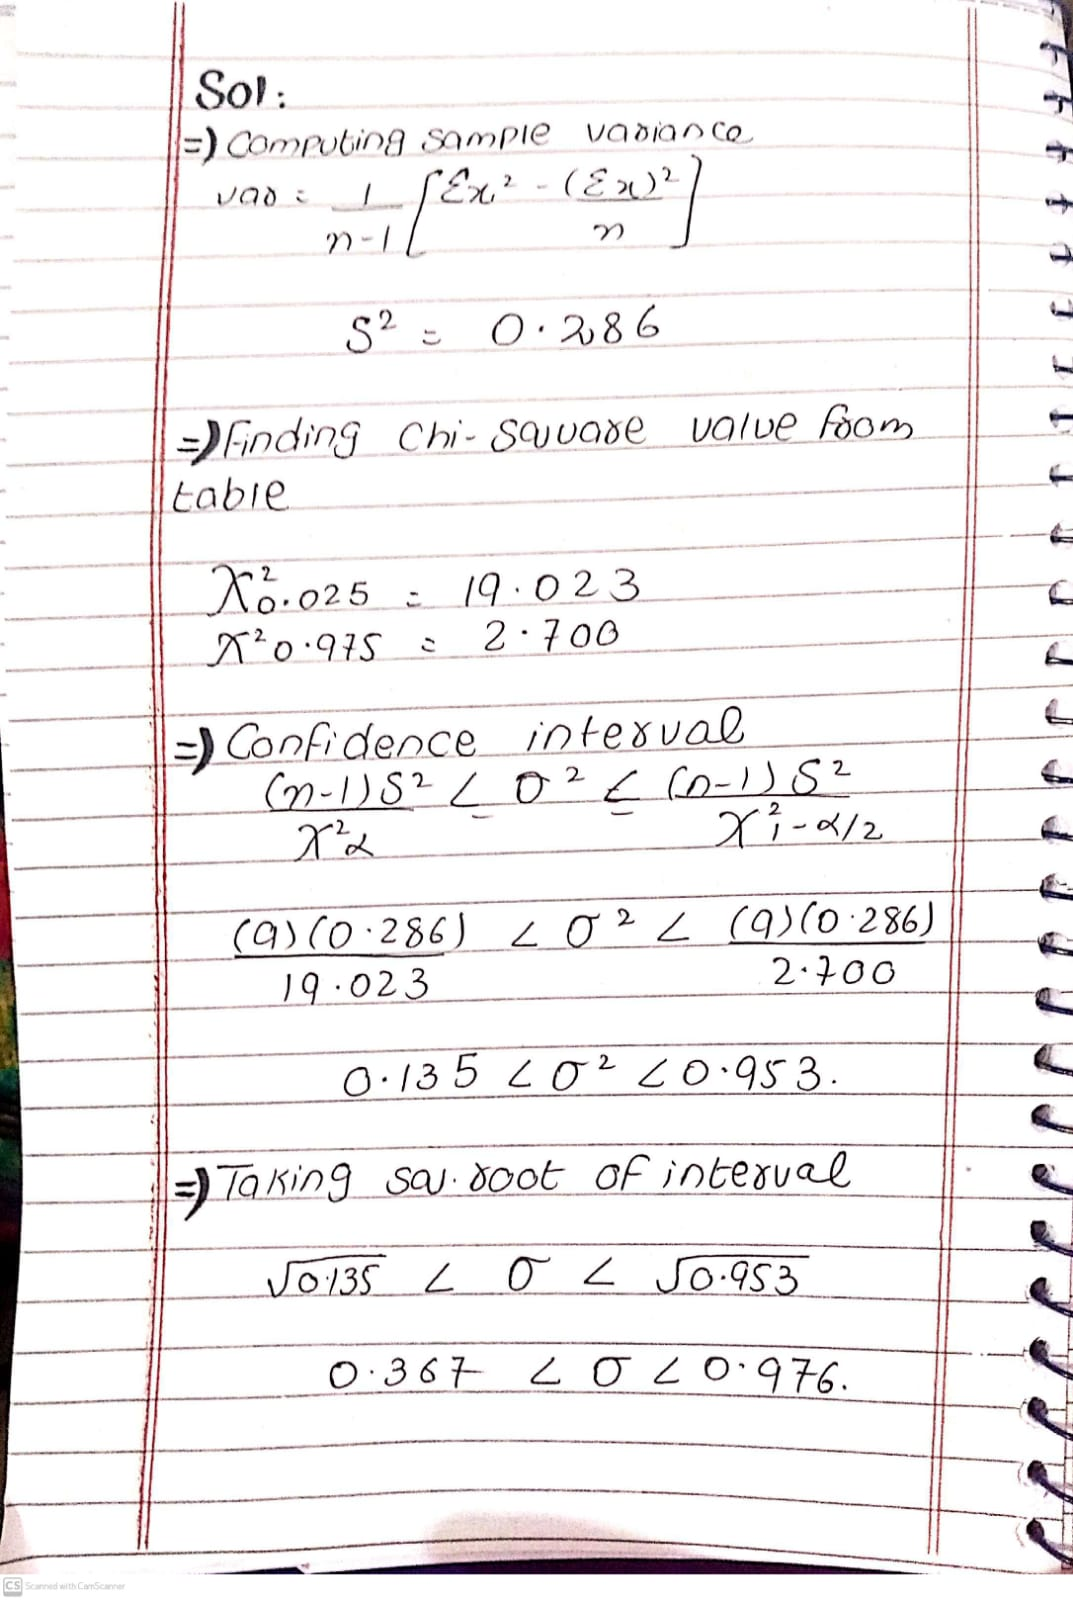 Sol:
=) Computing sample variance
var = 1/(n-1) [Σx² - (Σx)²/n]
S² = 0.286
=) Finding Chi-square value from
table
χ²0.025 = 19.023
χ²0.975 = 2.700
=) Confidence interval
(n-1)S²/χ²α ≤ σ² ≤ (n-1)S²/χ²1-α/2
(9)(0.286)/19.023 < σ² < (9)(0.286)/2.700
0.135 < σ² < 0.953.
=) Taking sq. root of interval
√0.135 < σ < √0.953
0.367 < σ < 0.976.
CS Scanned with CamScanner